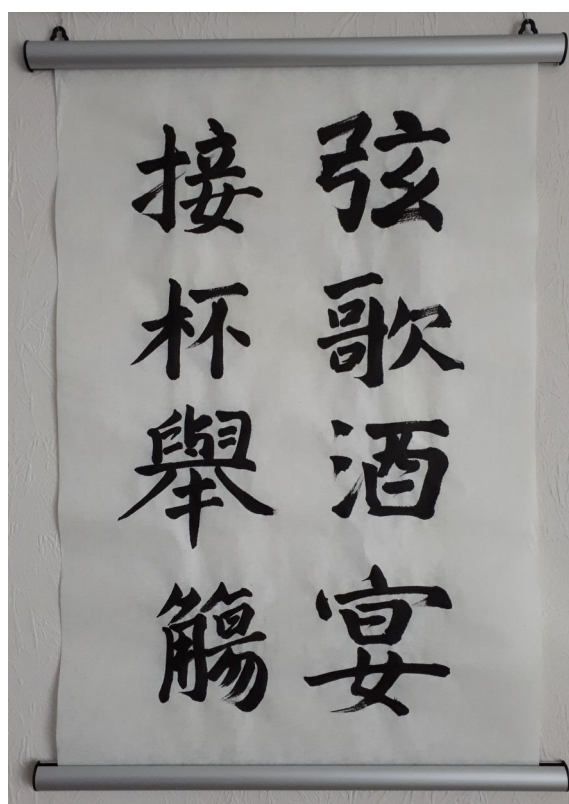 弦歌酒宴
接杯舉觴